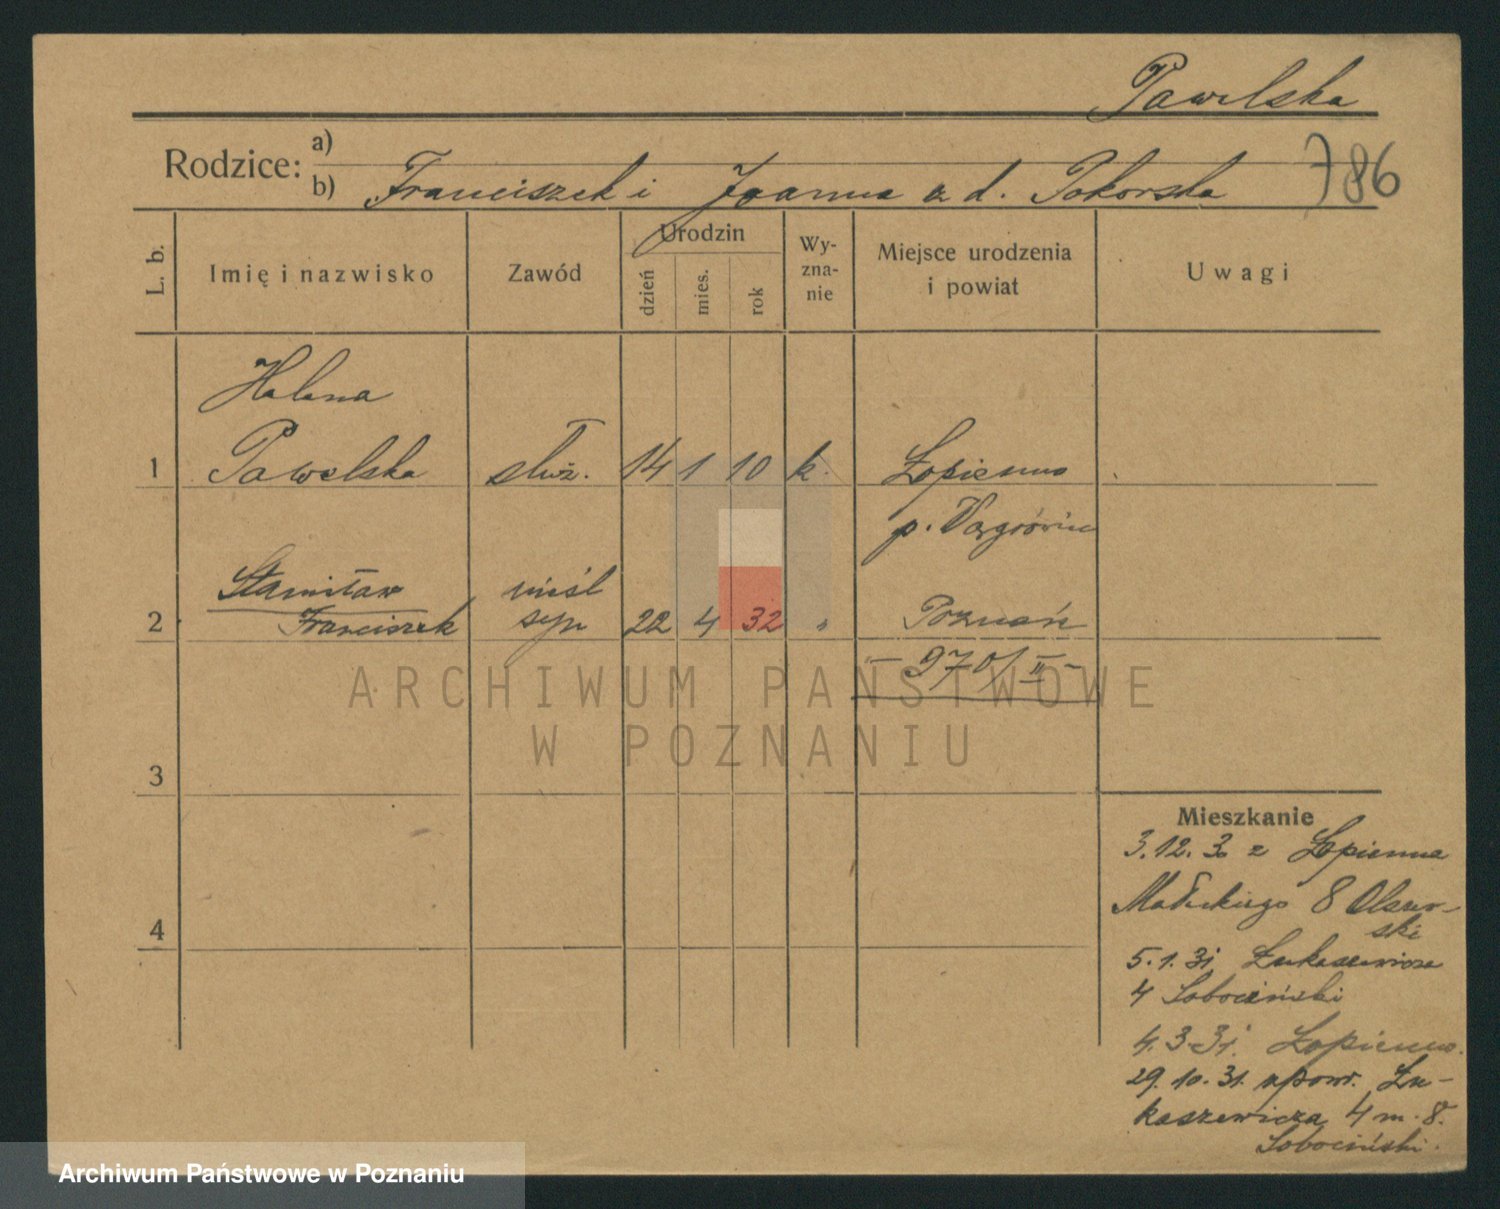 Pawelska
Rodzice: a)
b) Franciszek i Joanna z d. Pokorska
786
L. b.
Imię i nazwisko
Zawód
Urodzin
dzień
mies.
rok
Wy-
zna-
nie
Miejsce urodzenia
i powiat
Uwagi
Helena
1 Pawelska służ. 14 1 10 k. Łopienno
p. Wągrówiec
Stanisław nieśl
2 Franciszek syn 22 4 32 " Poznań
- 970/II -
ARCHIWUM PAŃSTWOWE
W POZNANIU
3
4
Mieszkanie
3.12.30 z Łopienna
Małeckiego 8 Olszew-
ski
5.1.31 Łukaszewicza
4 Sobociński
4.3.31. Łopienno.
29.10.31. zpowr. Łu-
kaszewicza 4 m. 8.
Sobociński.
Archiwum Państwowe w Poznaniu